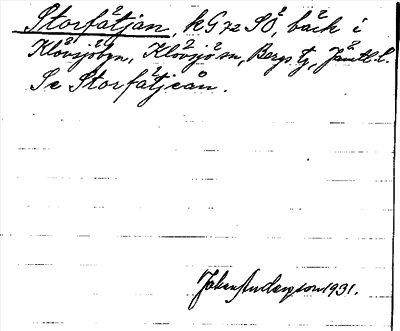 Storfåtjän, kG72SÖ, bäck i
Klövsjöbyn, Klövsjö sn, Bergs tg, Jämtl. l.
Se Storfåtjeån.
Johan Anderson 1931.